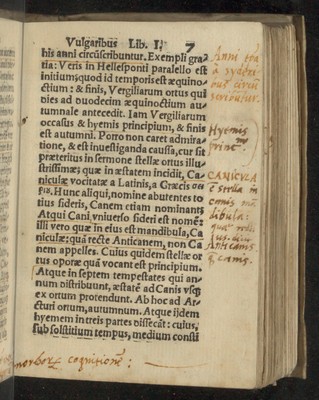 Vulgaribus Lib. I. 7
his anni circũscribuntur. Exempli gra
tia: Veris in Hellesponti paralello est
initium, quod id temporis est æquino
ctium: & finis, Vergiliarum ortus qui
dies ad duodecim æquinoctium au
tumnale antecedit. Iam Vergiliarum
occasus & hyemis principium, & finis
est autumni. Porro non caret admira
tione, & est inuestiganda caussa, cur sit
præteritus in sermone stellæ ortus illu
strissimæ; quæ in æstatem incidit, Ca
niculæ vocitatæ a Latinis, a Græcis
Hunc aliqui, nomine abutentes to
tius sideris, Canem etiam nominant
Atqui Cani vniuerso sideri est nomē:
illi vero quæ in eius est mandibula, Ca
niculæ: quā recte Anticanem, non Ca
nem appelles. Cuius quidem stellæ or
tus oporæ quā vocant est principium.
Atque in septem tempestates qui an-
num distribuunt, æstatē ad Canis vsq;
ex ortum protendunt. Ab hoc ad Ar-
cturi ortum, autumnum. Atque ijdem
hyemem in treis partes dissecāt: cuius,
sub solstitium tempus, medium consti
Anni
Hyemis
princ:
CANICVLA
stella in
Anticanis
cognitione: